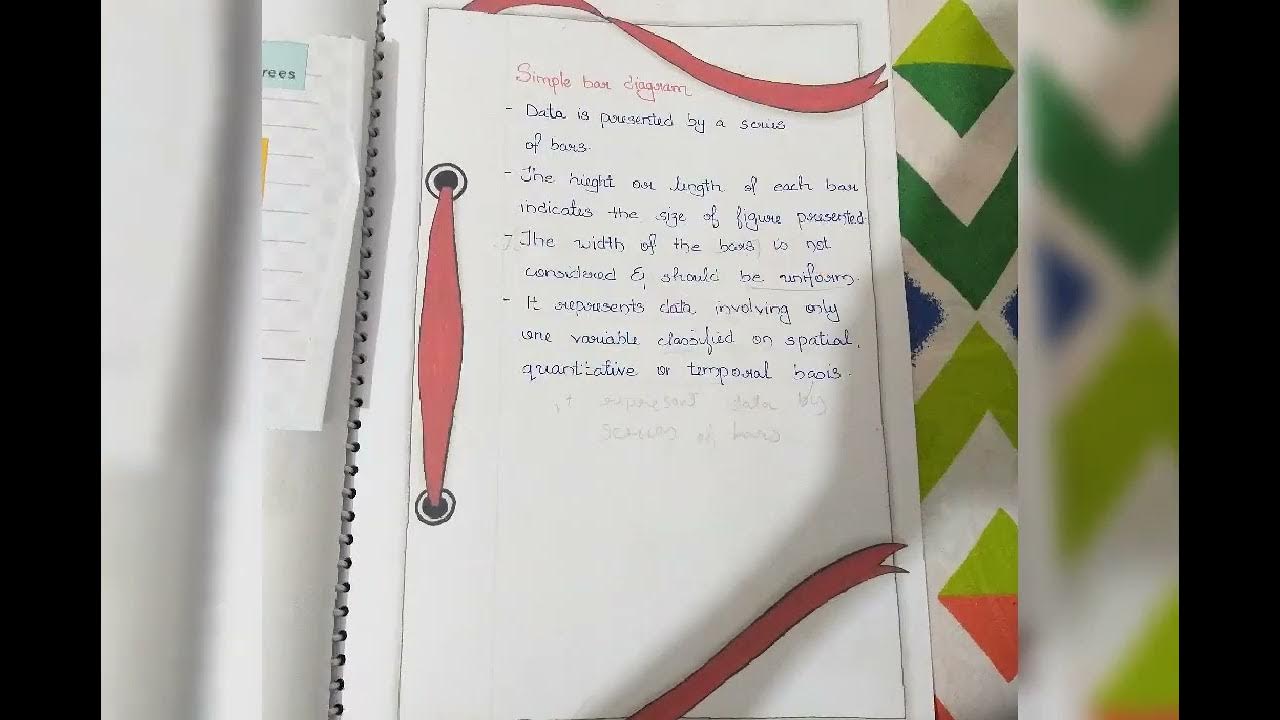 rees
Simple bar diagram
- Data is presented by a series
of bars.
- The hieght or length of each bar
indicates the size of figure presented.
- The width of the bars is not
considered & should be uniform.
- It represents data involving only
one variable classified on spatial,
quantitative or temporal basis.
it represent data by
series of bars